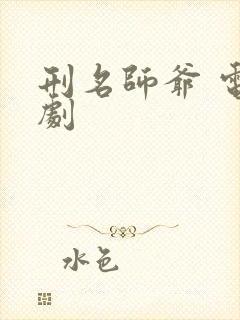 刑名師爺 電
劇
水色